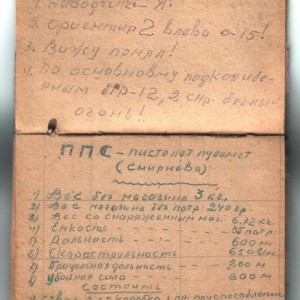 1. Наводчик - Я!
2. Ориентир 2 влево 0-15!
3. Вижу понял!
4. По основному подкалибе-
рным бр-12, 2 снр. беглый
огонь!
ППС - пистолет пулемет
(Смирнова)
1) Вес без магазина 3 кг.
2) Вес магазина без патр. 240 гр.
3) Вес со снаряженным маг. 6,72 кг.
4) Емкость - - - 35 патр
5) Дальность - - - 600 м
6) Скорострельность 650 в м.
7) Прицельная дальность - 200 м
8) Убойная сила - - 600 м
Состоить